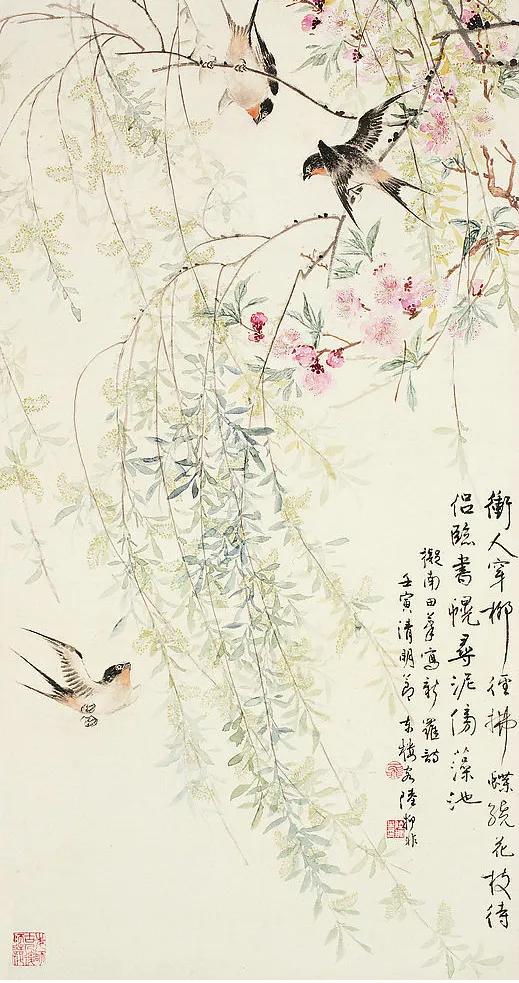 衝人穿柳徑拂蝶繞花枝待
侶臨書幌尋泥傍藻池
擬南田筆寫新羅詩
壬寅清明節 東樓客陸抑非